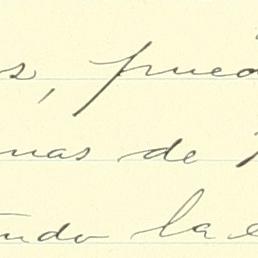 s, pued
nas de
ndo la e